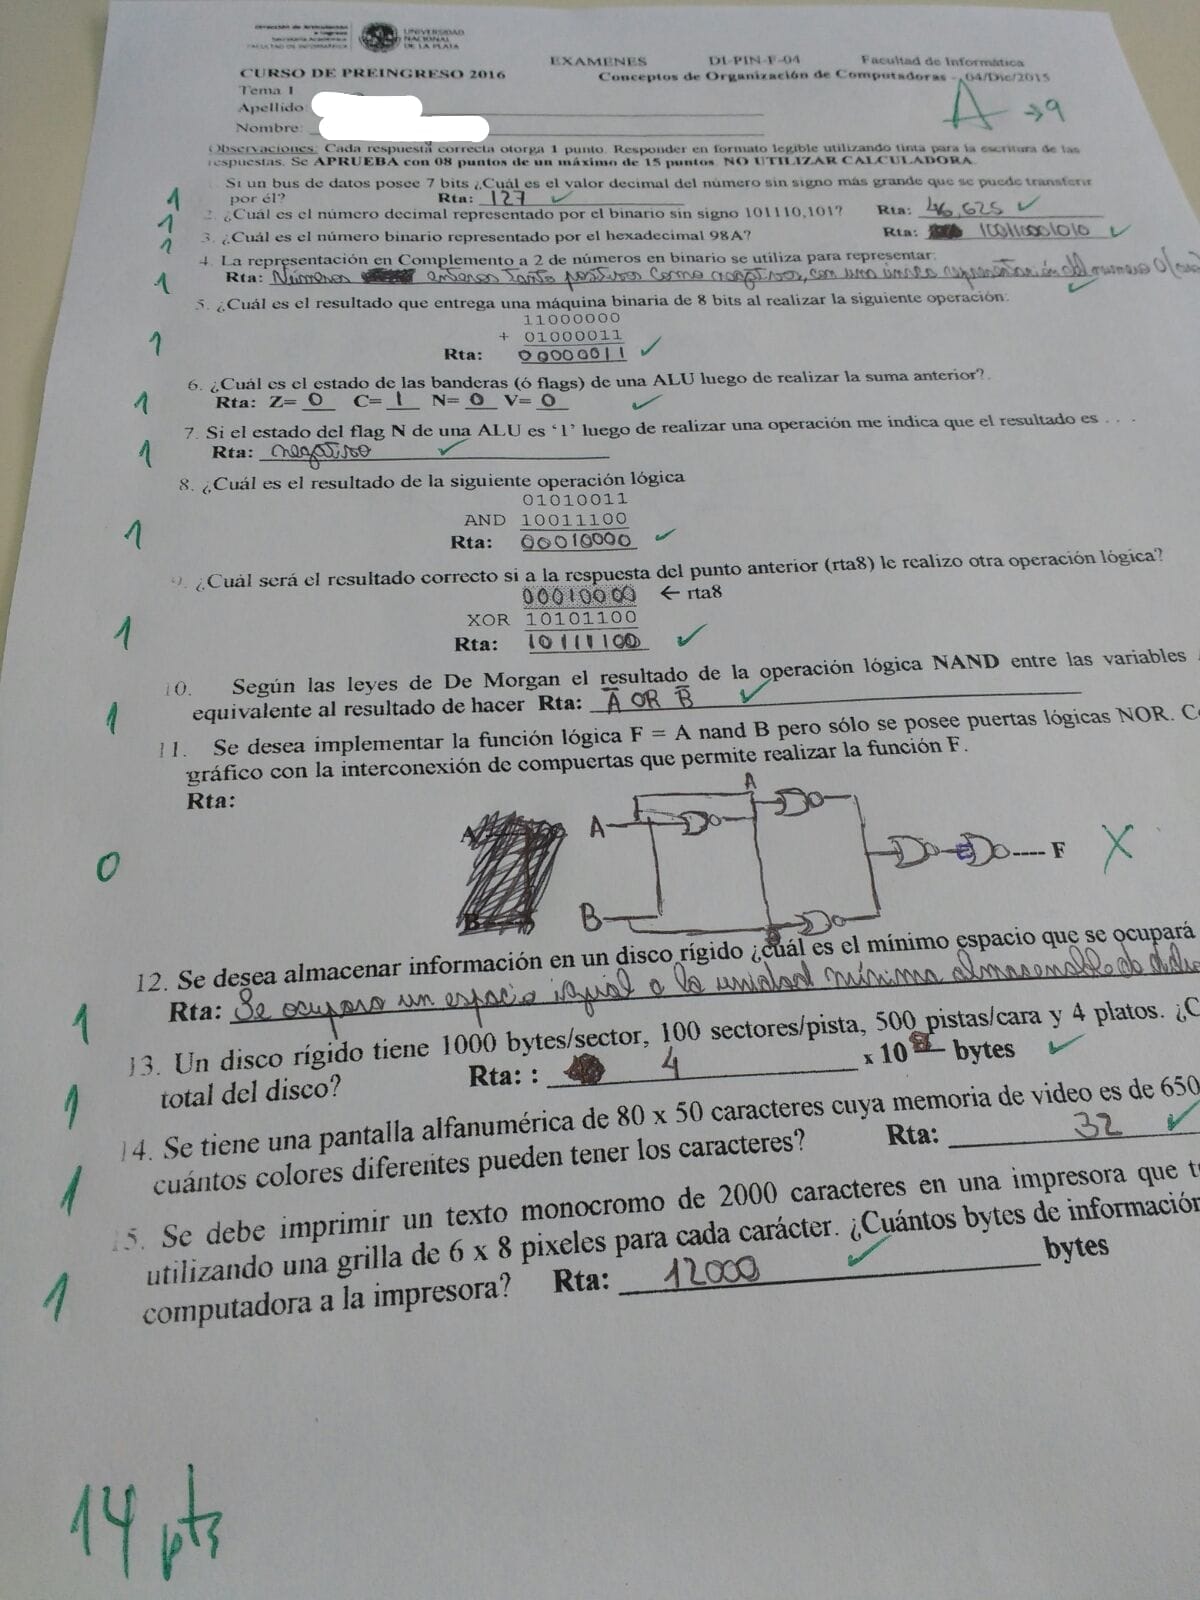 Dirección de Articulación
e Ingreso
Secretaría Académica
FACULTAD DE INFORMÁTICA
UNIVERSIDAD
NACIONAL
DE LA PLATA
EXAMENES DI-PIN-F-04 Facultad de Informática
CURSO DE PREINGRESO 2016 Conceptos de Organización de Computadoras - 04/Dic/2015
Tema 1
A → 9
Apellido
Nombre:
Observaciones: Cada respuesta correcta otorga 1 punto. Responder en formato legible utilizando tinta para la escritura de las
respuestas. Se APRUEBA con 08 puntos de un máximo de 15 puntos. NO UTILIZAR CALCULADORA.
Si un bus de datos posee 7 bits ¿Cuál es el valor decimal del número sin signo más grande que se puede transferir
1 por él? Rta: 127 ✓
1 2. ¿Cuál es el número decimal representado por el binario sin signo 101110,101? Rta: 46,625 ✓
1 3. ¿Cuál es el número binario representado por el hexadecimal 98A? Rta: 100110001010 ✓
4. La representación en Complemento a 2 de números en binario se utiliza para representar:
1 Rta: Números enteros tanto positivos como negativos, con una única representación del numero 0 ✓
5. ¿Cuál es el resultado que entrega una máquina binaria de 8 bits al realizar la siguiente operación:
11000000
+ 01000011
1 Rta: 00000011 ✓
6. ¿Cuál es el estado de las banderas (ó flags) de una ALU luego de realizar la suma anterior?.
1 Rta: Z= 0 C= 1 N= 0 V= 0 ✓
7. Si el estado del flag N de una ALU es '1' luego de realizar una operación me indica que el resultado es . . .
1 Rta: negativo ✓
8. ¿Cuál es el resultado de la siguiente operación lógica
01010011
AND 10011100
1 Rta: 00010000 ✓
9. ¿Cuál será el resultado correcto si a la respuesta del punto anterior (rta8) le realizo otra operación lógica?
00010000 ← rta8
XOR 10101100
1 Rta: 10111100 ✓
10. Según las leyes de De Morgan el resultado de la operación lógica NAND entre las variables
1 equivalente al resultado de hacer Rta: A̅ OR B̅ ✓
11. Se desea implementar la función lógica F = A nand B pero sólo se posee puertas lógicas NOR.
gráfico con la interconexión de compuertas que permite realizar la función F.
Rta:
A
A
0 F X
B
12. Se desea almacenar información en un disco rígido ¿cuál es el mínimo espacio que se ocupará
1 Rta: Se ocupara un espacio igual a la unidad mínima almacenable de dicho
13. Un disco rígido tiene 1000 bytes/sector, 100 sectores/pista, 500 pistas/cara y 4 platos.
1 total del disco? Rta: : 4 x 10 8 bytes ✓
14. Se tiene una pantalla alfanumérica de 80 x 50 caracteres cuya memoria de video es de 650
1 cuántos colores diferentes pueden tener los caracteres? Rta: 32 ✓
15. Se debe imprimir un texto monocromo de 2000 caracteres en una impresora que
utilizando una grilla de 6 x 8 pixeles para cada carácter. ¿Cuántos bytes de información
1 computadora a la impresora? Rta: 12000 ✓ bytes
14 pts